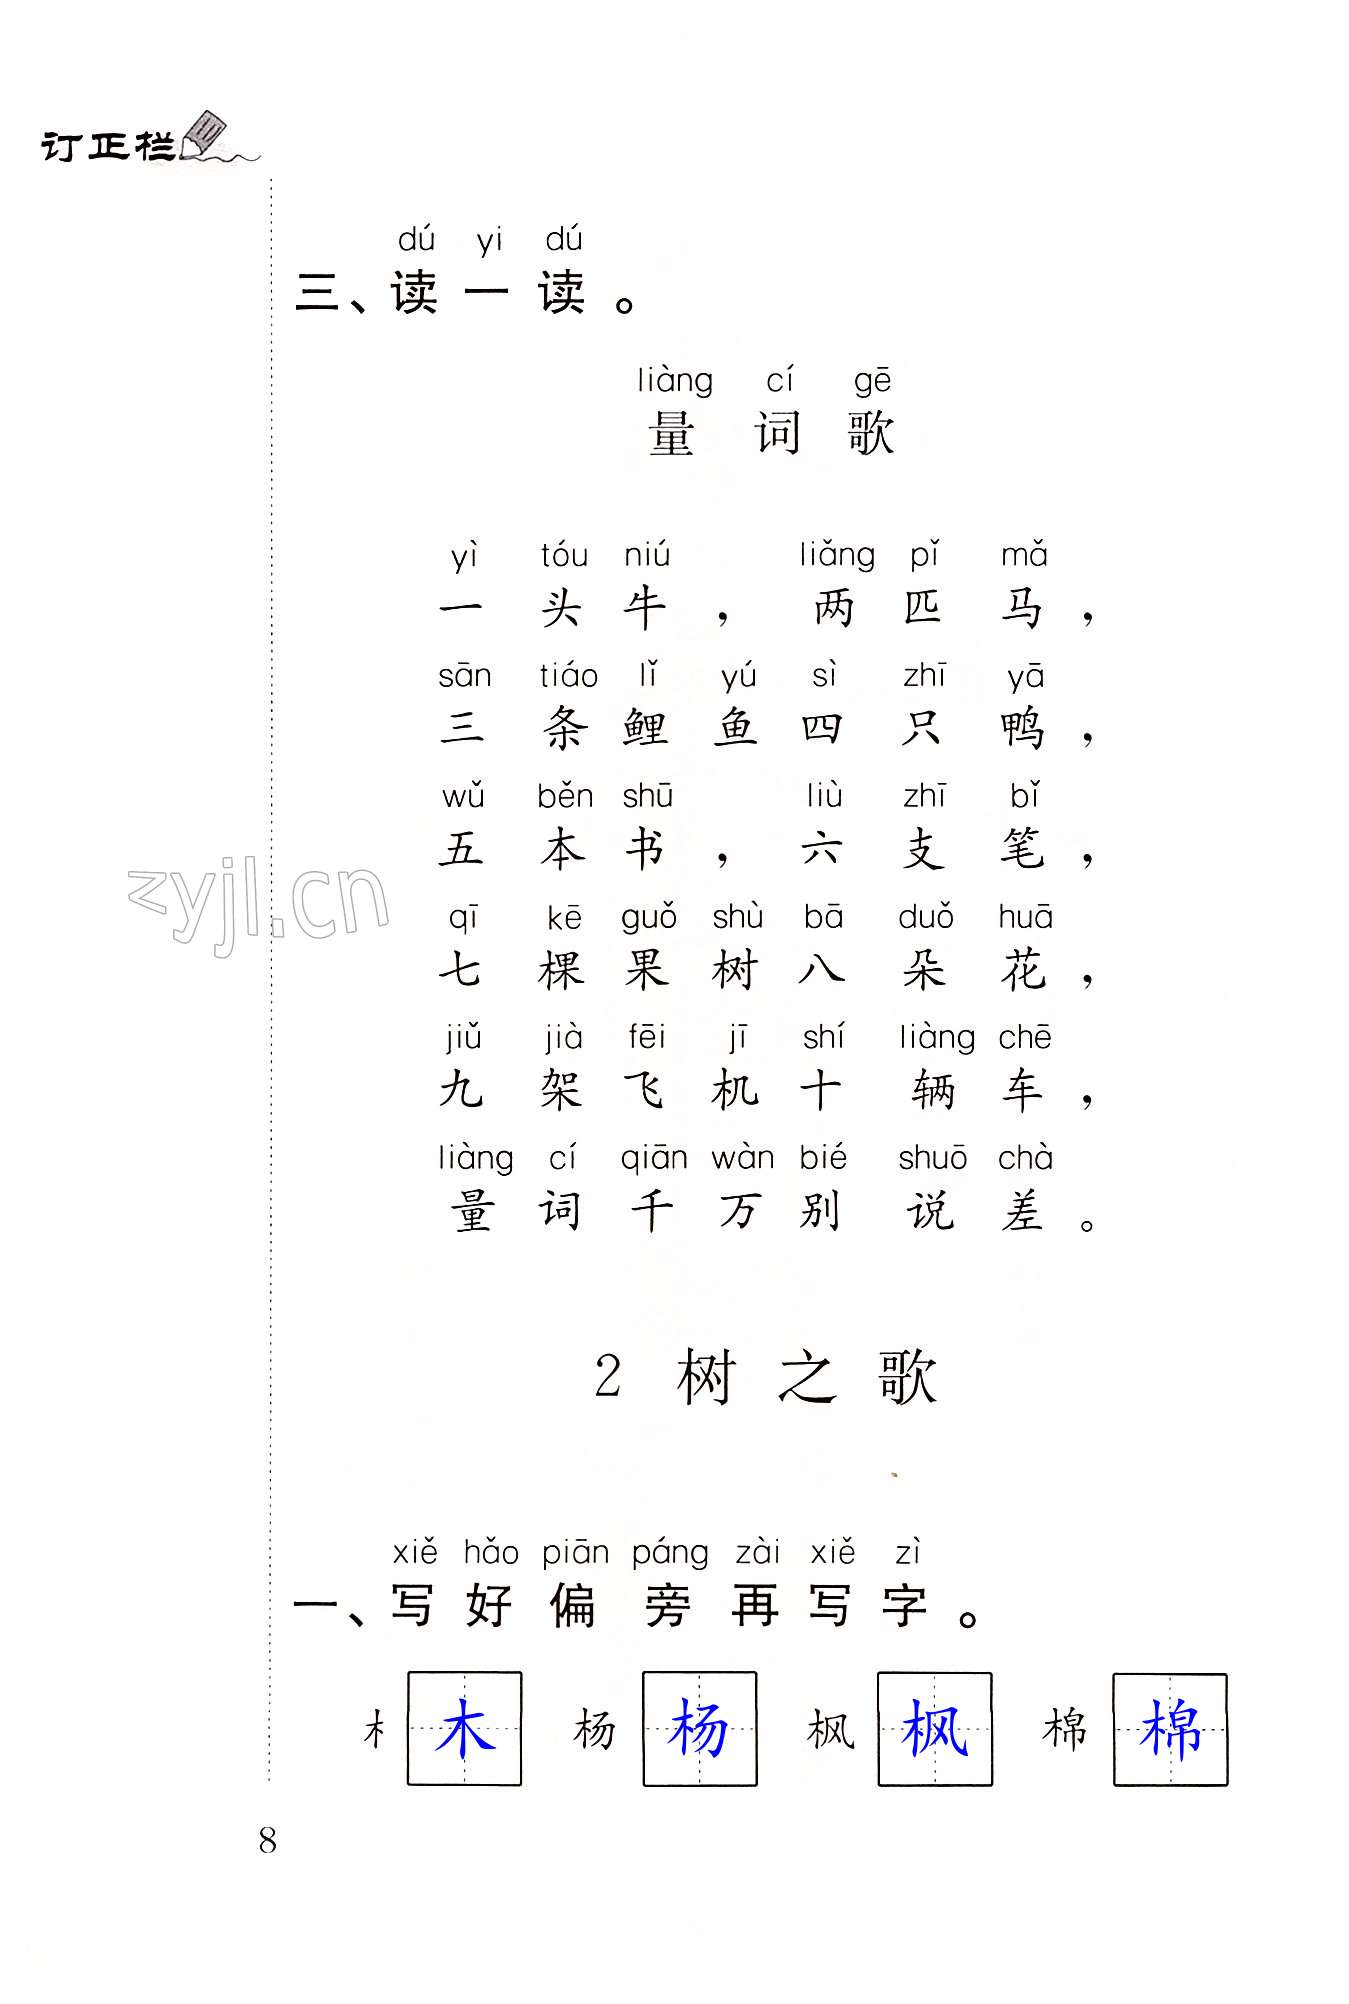 订正栏
dú yi dú
三、读一读。
liàng cí gē
量词歌
yì tóu niú liǎng pǐ mǎ
一头牛，两匹马，
sān tiáo lǐ yú sì zhī yā
三条鲤鱼四只鸭，
wǔ běn shū liù zhī bǐ
五本书，六支笔，
qī kē guǒ shù bā duǒ huā
七棵果树八朵花，
jiǔ jià fēi jī shí liàng chē
九架飞机十辆车，
liàng cí qiān wàn bié shuō chà
量词千万别说差。
zyjl.cn
2 树之歌
xiě hǎo piān páng zài xiě zì
一、写好偏旁再写字。
木 木 杨 杨 枫 枫 棉 棉
8